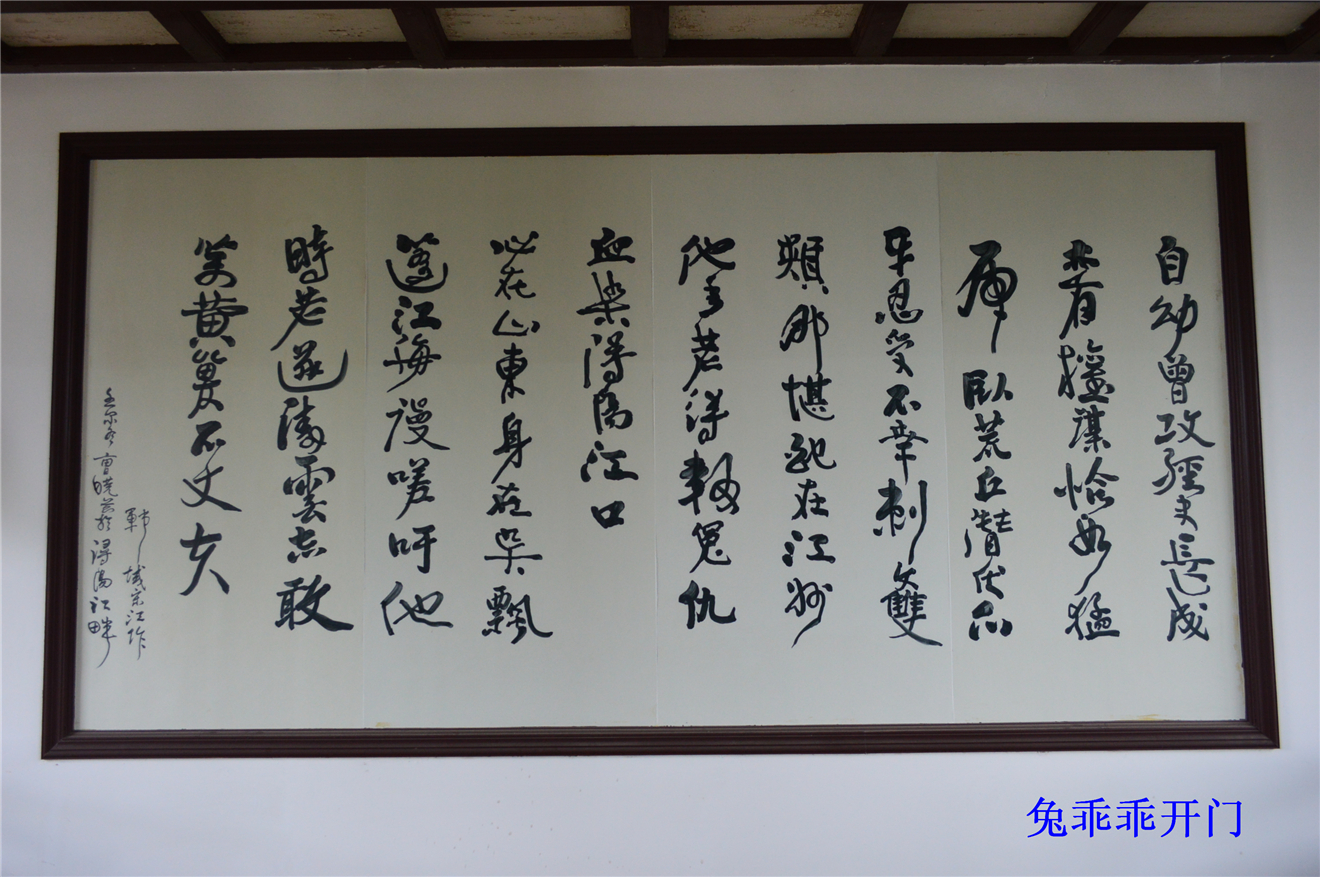 自幼曾攻經史長成
亦有權謀恰如猛
虎臥荒丘潛伏爪
牙忍受不幸刺雙
頰那堪配在江州
他年若得報冤仇
血染潯陽江口
心在山東身在吳飄
蓬江海謾嗟吁他
時若遂凌雲志敢
笑黃巢不丈夫
鄆城宋江作
冬曹曉潯陽江畔
兔乖乖开门